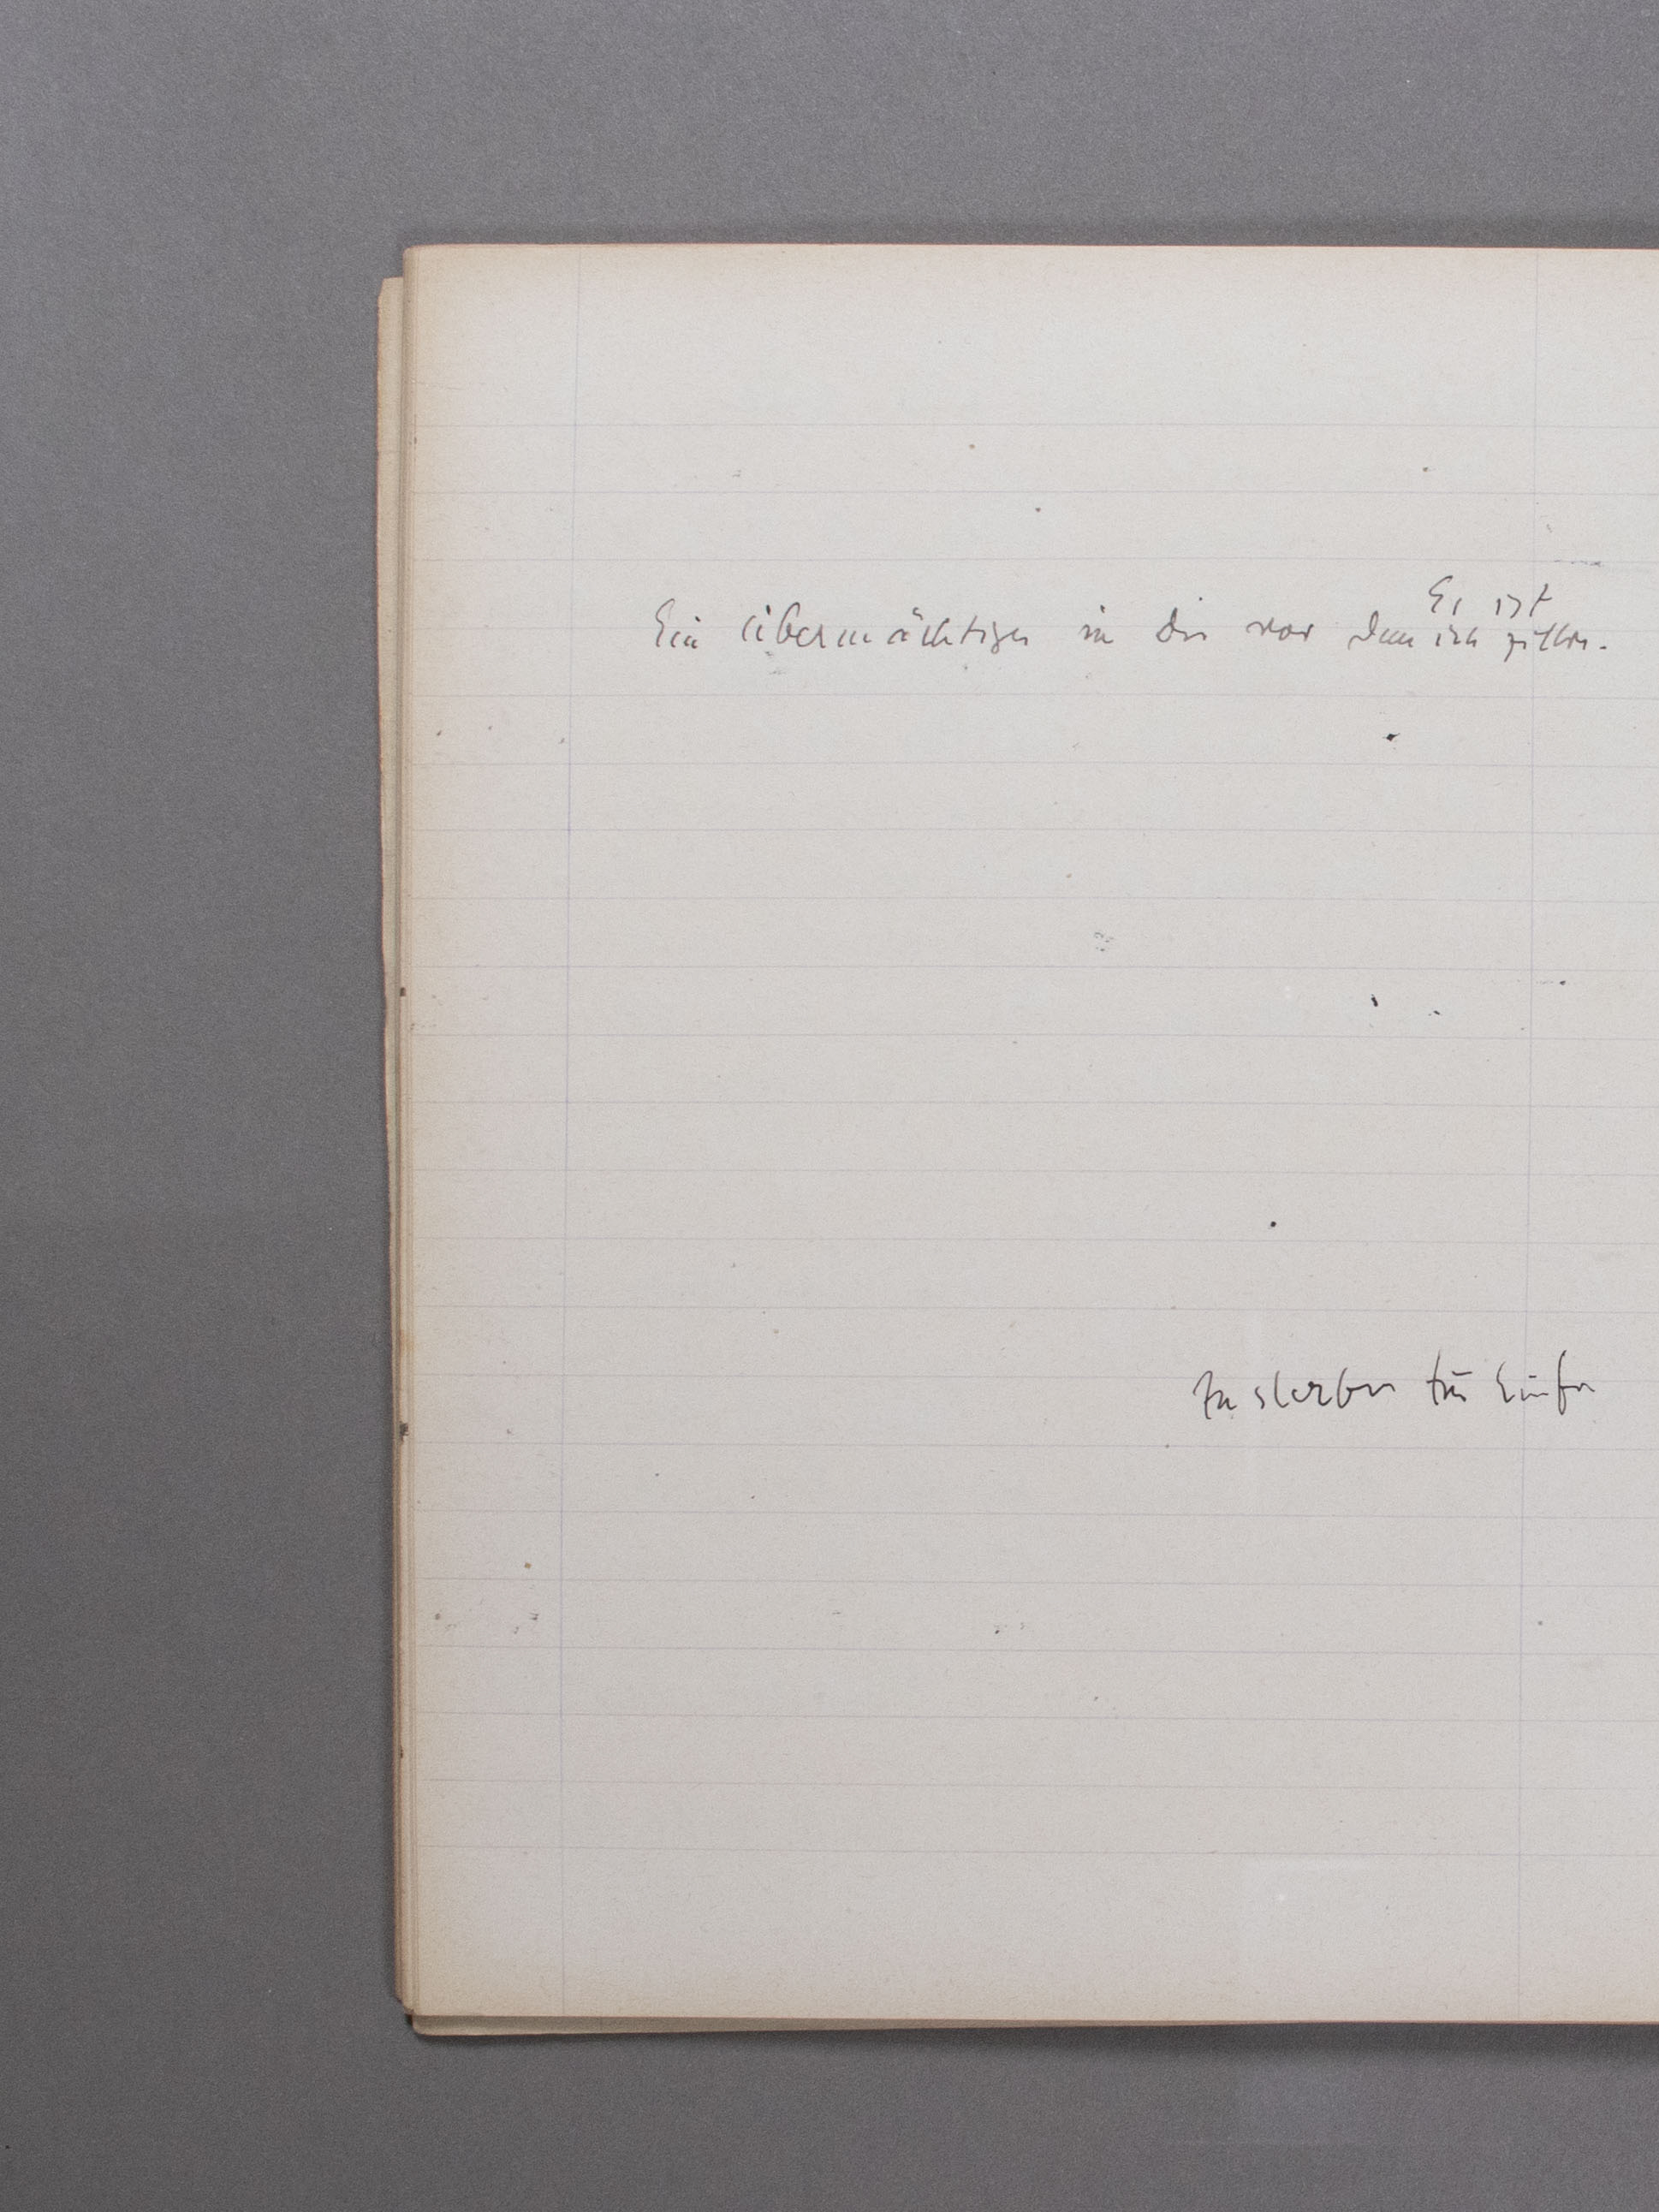 Er ist
Ein übermächtiger in dir vor dem ich zittre.
zu sterben für